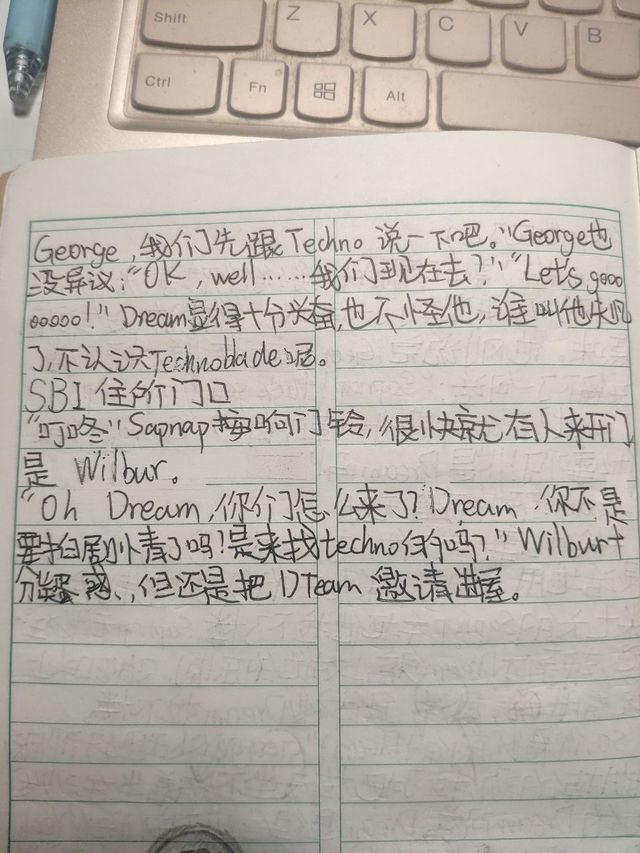 Shift
Z
X
C
V
B
Ctrl
Fn
Alt
George,我们先跟Techno说一下吧。"George也
没异议:"OK,well……我们现在去?""Let's gooo
ooooo!"Dream显得十分兴奋,也不怪他,谁叫他
了,不认识Technoblade呢。
SBI住所门口
"叮咚"Sapnap按响门铃,很快就有人来开门
是 Wilbur。
"Oh Dream,你们怎么来了?Dream,你不是
要拍剧情了吗?是来找techno的吗?"Wilbur十
分疑惑,,但还是把DTeam邀请进屋。